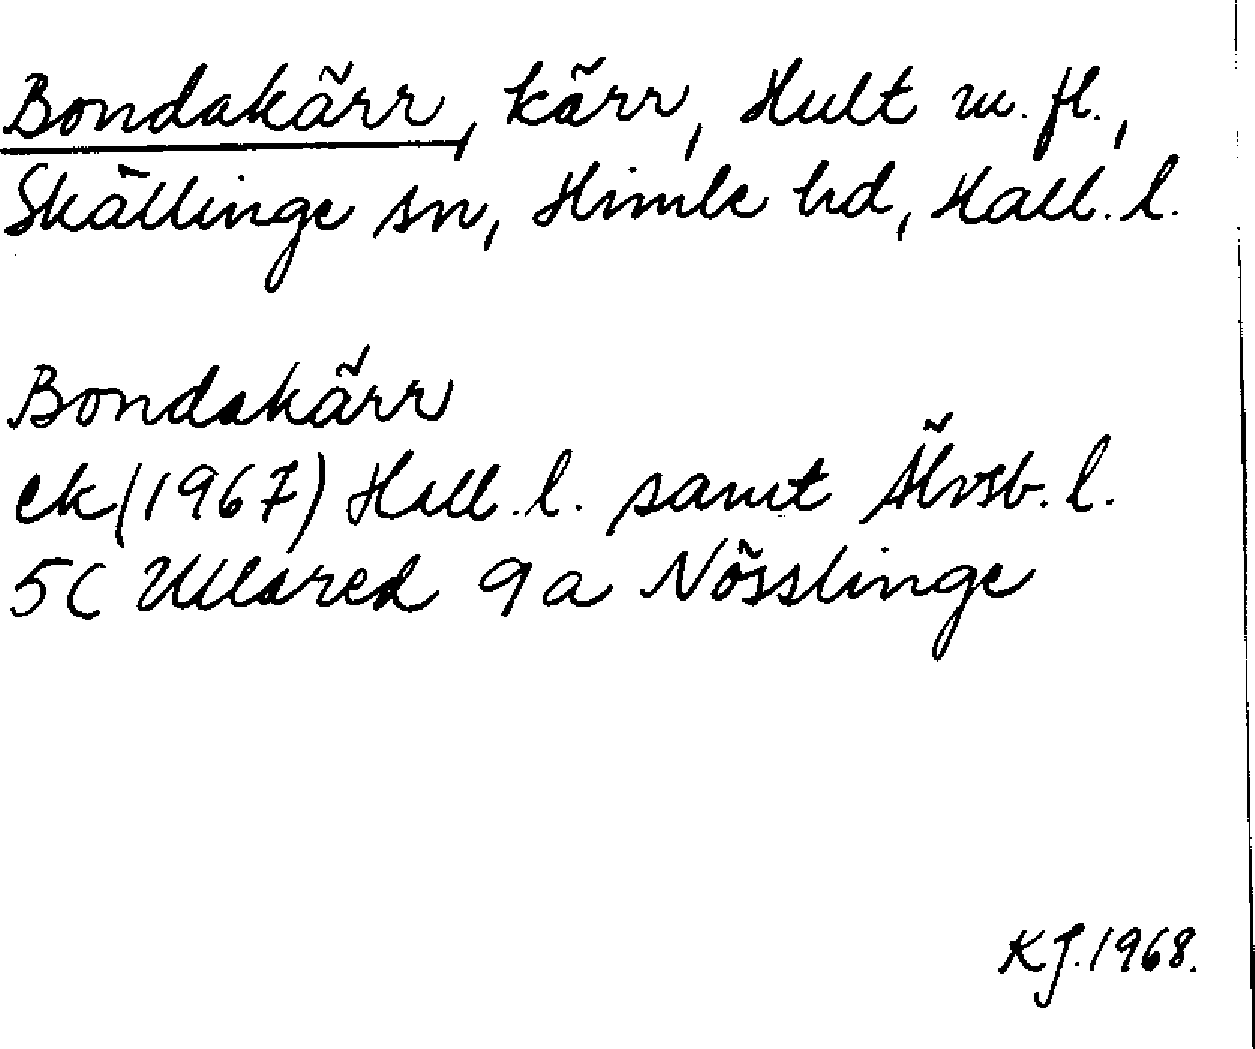 Bondakärr, kärr, Hult m. fl.,
Skällinge sn, Himle hd, Hall. l.
Bondakärr
ek (1967) Hall. l. samt Älvsb. l.
5C Ullared 9a Nösslinge
KJ. 1968.